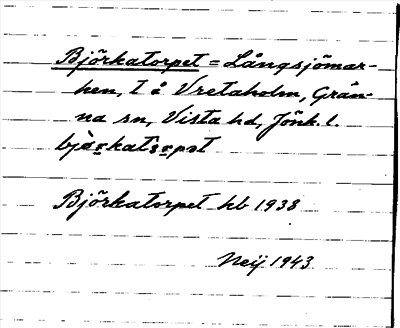 Björkatorpet = Långsjömar-
ken, t å Vretaholm, Grän-
na sn, Vista hd, Jönk. l.
Björkatorpet hb 1938
Neij 1943